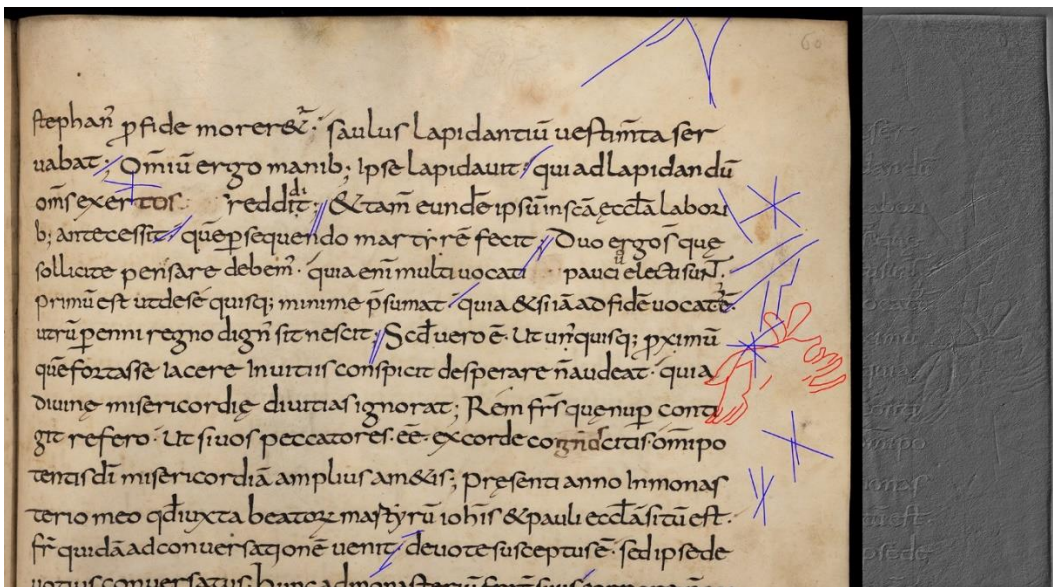 60
stephañ p̱ fide morer&ᷓ· saulus lapidantiū uestim̄ta ser
uabat; Om̄iū ergo manib; Ipse lapidauit; qui ad lapidandū
om̄s exer tos reddidit; & tam̄ eundē ipsū in sc̄a ęccl̄a labori
b; antecessit; quē ꝑsequendo martyrē fecit; Duo ergo s̄ quę
sollicite pensare debem̄· quia eni multi uocati pauci u electi sunt·
Primū est ut de sē quisq; minime p̄sumat· quia & si iā ad fidē uocatꝰ ē·
utrū ꝑenni regno dign̄ sit nescit; Scd̄ uero ē· Ut un̄quisq; pximū
quē fortasse iacere In uitiis conspicit desperare n̄ audeat· quia
diuinę misericordię diuitias ignorat; Rem fr̄s quę nuꝑ conti
git refero· Ut si uos peccatores· eē· ex corde cognoscitis· om̄ipo
tentis dī misericordiā amplius am&is; Pręsenti anno In monas
terio meo qd̄ iuxta beatoꝝ martyrū ioh̄is & pauli ęccl̄ā sitū est·
fr̄ quidā ad conuersationē uenit· deuote susceptus ē· sed ipse de
uotius conuersatus· hunc ad monasteriū